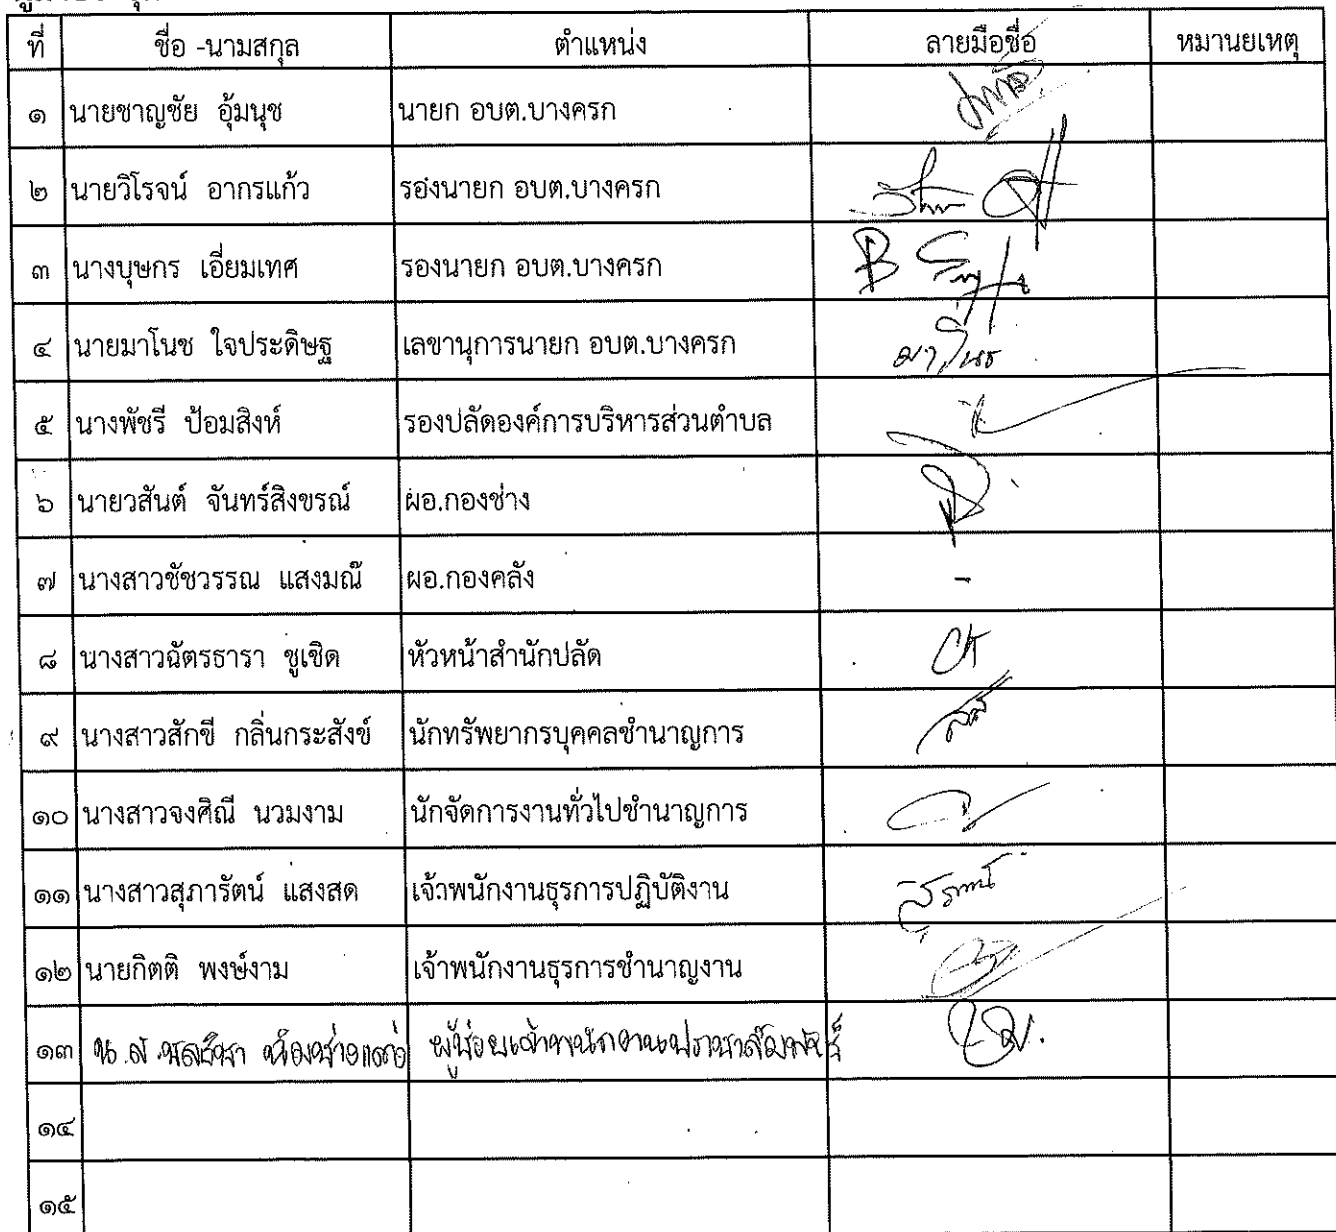 ที่ ชื่อ -นามสกุล ตำแหน่ง ลายมือชื่อ หมานยเหตุ
๑ นายชาญชัย อุ้มนุช นายก อบต.บางครก
๒ นายวิโรจน์ อากรแก้ว รองนายก อบต.บางครก
๓ นางบุษกร เอี่ยมเทศ รองนายก อบต.บางครก
๔ นายมาโนช ใจประดิษฐ เลขานุการนายก อบต.บางครก มาโนช
๕ นางพัชรี ป้อมสิงห์ รองปลัดองค์การบริหารส่วนตำบล
๖ นายวสันต์ จันทร์สิงขรณ์ ผอ.กองช่าง
๗ นางสาวชัชวรรณ แสงมณี ผอ.กองคลัง -
๘ นางสาวฉัตรธารา ชูเชิด หัวหน้าสำนักปลัด
๙ นางสาวสักขี กลิ่นกระสังข์ นักทรัพยากรบุคคลชำนาญการ
๑๐ นางสาวจงศิณี นวมงาม นักจัดการงานทั่วไปชำนาญการ
๑๑ นางสาวสุภารัตน์ แสงสด เจ้าพนักงานธุรการปฏิบัติงาน
๑๒ นายกิตติ พงษ์งาม เจ้าพนักงานธุรการชำนาญงาน
๑๓ น.ส. ผู้ช่วยเจ้าพนักงานประชาสัมพันธ์
๑๔
๑๕